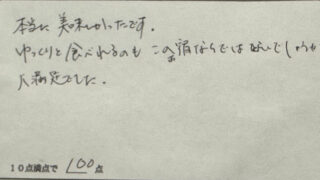 本当に美味しかったです。
ゆっくりと食べれるのもこの宿ならではなんでしょうか
大満足でした。
10点満点で 100 点